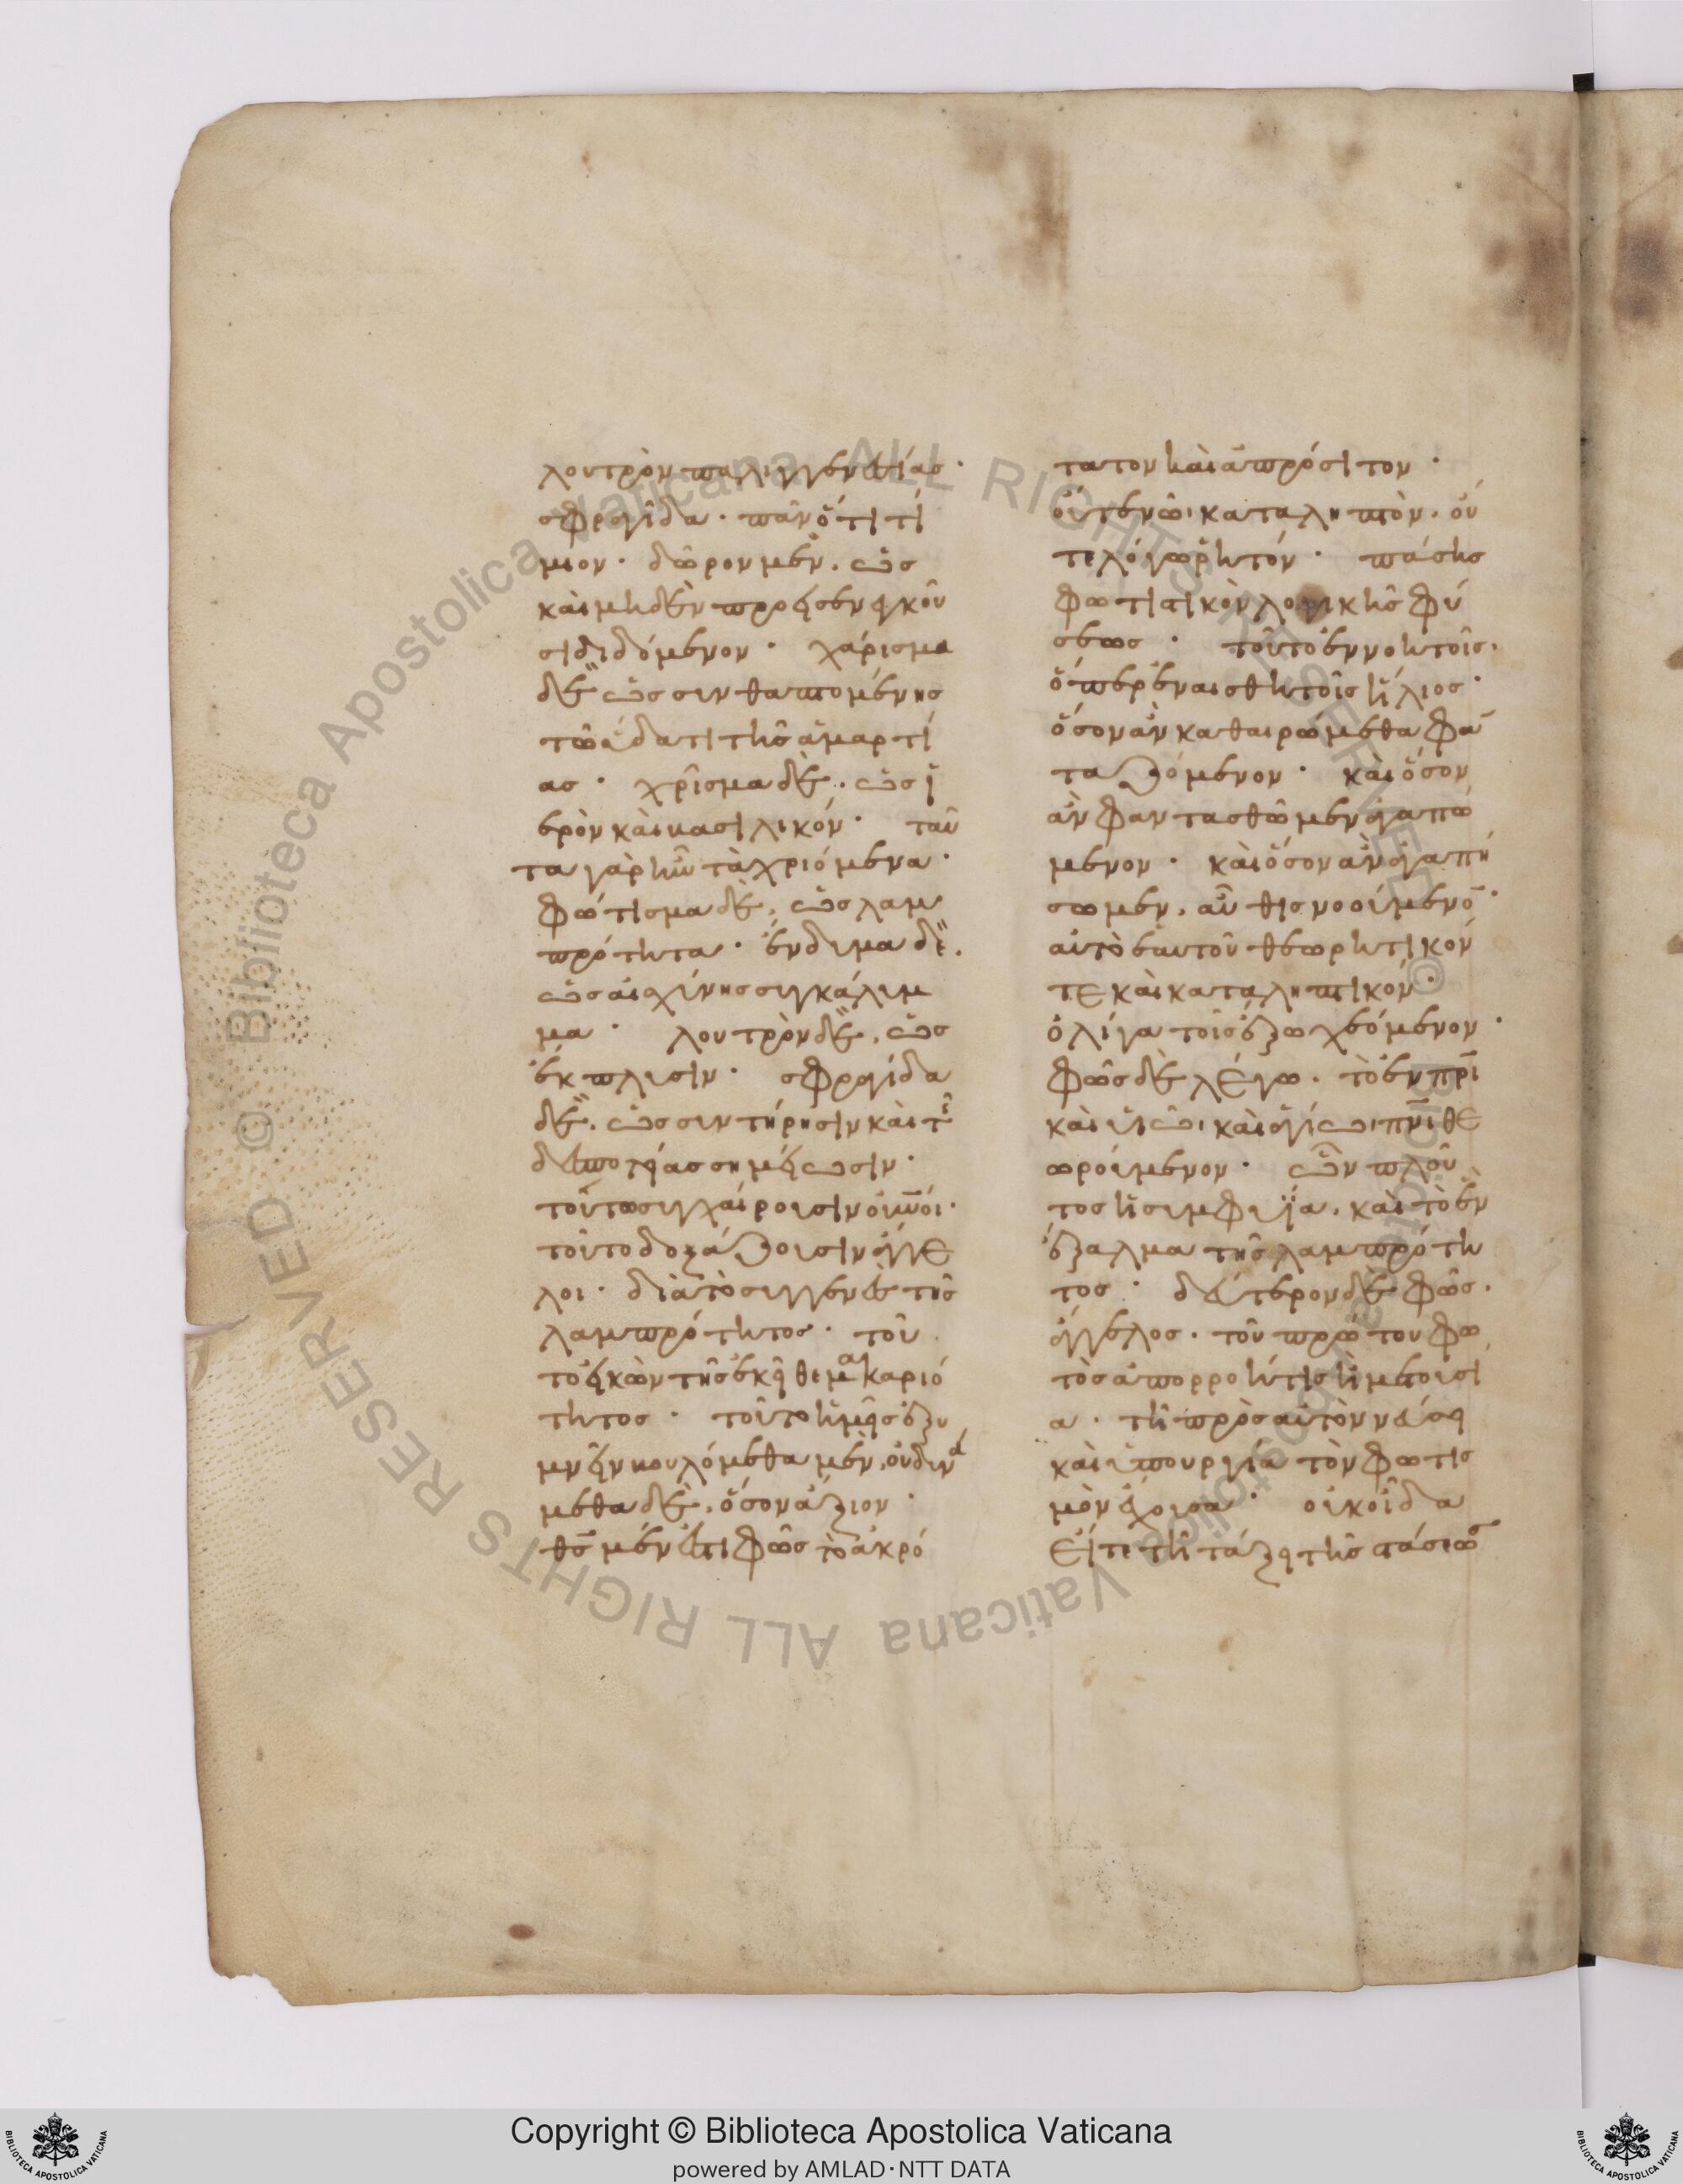 λουτρὸν παλιγγενεσίας·
σφραγῖδα· πᾶν ὅτι τί
μιον· δῶρον μὲν, ὡς
καὶ μηδὲν προεισενεγκοῦ
σι διδόμενον· χάρισμα
δὲ ὡς συνθαπτομένης
τῶ ὕδατι τῆς ἁμαρτί
ας· χρῖσμα δὲ, ὡς ἱ
ερὸν καὶ βασιλικόν· ταῦ
τα γὰρ ἦν τὰ χριόμενα·
φώτισμα δὲ, ὡς λαμ
πρότητα· ἔνδυμα δὲ,
ὡς αἰσχύνης συγκάλυμ
μα· λουτρὸν δὲ, ὡς
ἔκπλυσιν· σφραγίδα
δὲ, ὡς συντήρησιν καὶ τῆ
δεσποτείας σημείωσιν·
τούτω συγχαίρουσιν οὐνοί·
τοῦτο δοξάζουσιν ἄγγε
λοι· διὰ τὸ συγγενὲς τῆς
λαμπρότητος· τοῦ
το εἰκὼν τῆς ἐκεῖθε μακαριό
τητος· τοῦτο ἡμεῖς ἐξυ
μνεῖν βουλόμεθα μὲν, οὐ δυνά
μεθα δὲ, ὅσον ἄξιον·
θς μέν ἐστι φῶς τὸ ἀκρό
τατον καὶ ἀπρόσιτον·
οὔτε νῶι καταληπτὸν, οὔ
τε λόγω ῥητόν· πάσης
φωτιστικὸν λογικῆς φύ
σεως· τοῦτο ἐν νοητοῖς,
ὅπερ ἐν αἰσθητοῖς ἥλιος·
ὅσον ἂν καθαιρώμεθα φα
ταζόμενον· καὶ ὅσον
ἂν φαντασθῶμεν ἀγαπώ
μενον· καὶ ὅσον ἂν ἀγαπή
σωμεν, αὖθις νοούμενο·
αὐτὸ ἑαυτοῦ θεωρητικόν
τε καὶ καταληπτικόν·
ὀλίγα τοῖς ἔξω χεόμενον·
φῶς δὲ λέγω, τὸ ἐν πρι
καὶ υἱῶι καὶ ἁγίωι πνι θε
ωρούμενον· ὧν πλοῦ
τος ἡ συμφυΐα, καὶ τὸ ἓν
ἔξαλμα τῆς λαμπρότη
τος· δεύτερον δὲ φῶς,
ἄγγελος, τοῦ πρώτου φω
τὸς ἀπορροή τις ἢ μετουσί
α, τῆ πρὸς αὐτὸν νεύσει
καὶ ὑπουργία τὸν φωτισ
μὸν ἔχουσα· οὐκ οἶδα
εἴτε τῆ τάξει τῆς στάσεως